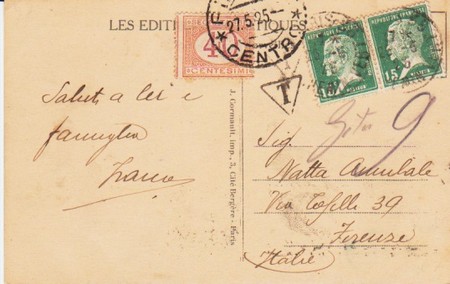 LES EDITI
TIQUES
FI
27.5.25
CENTRO
40
CENTESIMI
REPUBLIQUE FRANÇAISE
15
REPUBLIQUE FRANÇAISE
15
T
9
Salut a lei e
famiglia
J. Cormault, imp., 3, Cité Bergère - Paris
Sig.
Natta Annibale
Via 39
Firenze
Italie